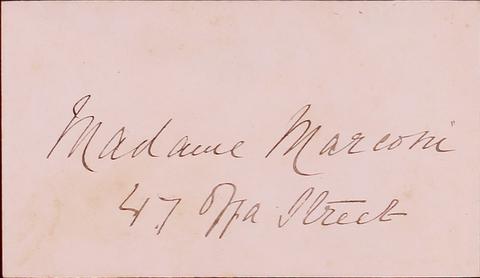 Madame Marconi
47 Offa Street